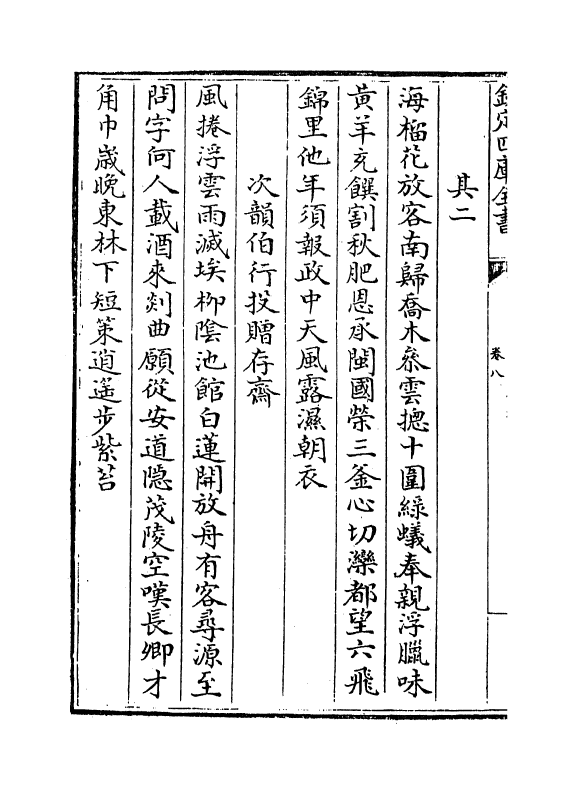 欽定四庫全書
卷八
其二
海榴花放客南歸喬木參雲摠十圍綠蟻奉親浮臘味
黄羊充饌割秋肥恩承閩國榮三釜心切灤都望六飛
錦里他年須報政中天風露濕朝衣
次韻伯行投贈存齋
風捲浮雲雨滅埃栁陰池館白蓮開放舟有客尋源至
問字何人載酒來剡曲願從安道隠茂陵空嘆長卿才
角巾歳晩東林下短策逍遙步紫苔